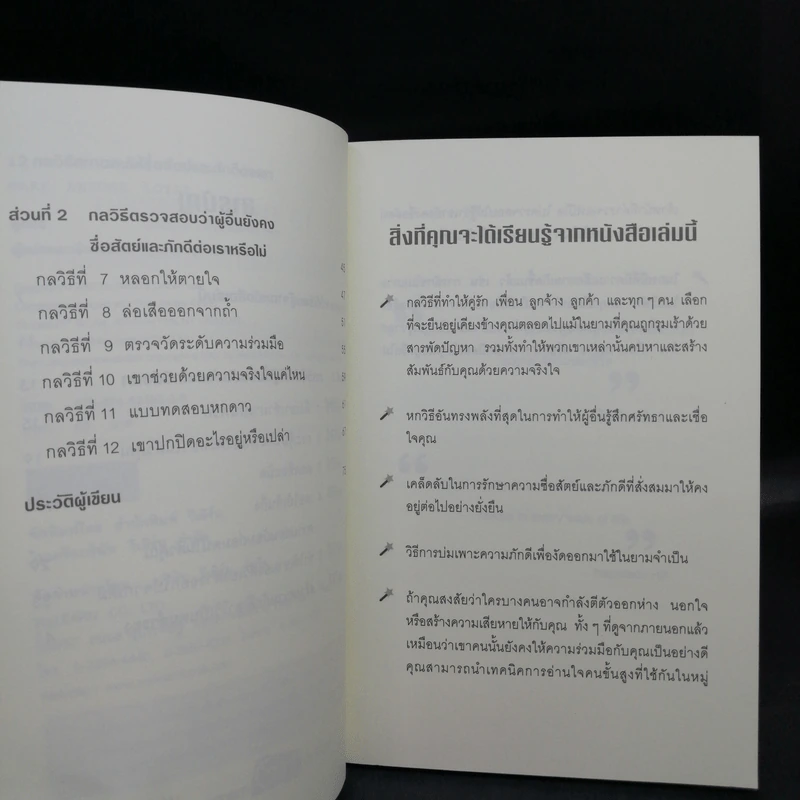 ส่วนที่ 2 กลวิธีตรวจสอบว่าผู้อื่นยังคง
ซื่อสัตย์และภักดีต่อเราหรือไม่
กลวิธีที่ 7 หลอกให้ตายใจ
กลวิธีที่ 8 ล่อเสือออกจากถ้ำ
กลวิธีที่ 9 ตรวจวัดระดับความร่วมมือ
กลวิธีที่ 10 เขาช่วยด้วยความจริงใจแค่ไหน
กลวิธีที่ 11 แบบทดสอบหกดาว
กลวิธีที่ 12 เขาปกปิดอะไรอยู่หรือเปล่า
ประวัติผู้เขียน
สิ่งที่คุณจะได้เรียนรู้จากหนังสือเล่มนี้
กลวิธีที่ทำให้คู่รัก เพื่อน ลูกจ้าง ลูกค้า และทุก ๆ คน เลือก
ที่จะยืนอยู่เคียงข้างคุณตลอดไปแม้ในยามที่คุณถูกรุมเร้าด้วย
สารพัดปัญหา รวมทั้งทำให้พวกเขาเหล่านั้นคบหาและสร้าง
สัมพันธ์กับคุณด้วยความจริงใจ
หกวิธีอันทรงพลังที่สุดในการทำให้ผู้อื่นรู้สึกศรัทธาและเชื่อ
ใจคุณ
เคล็ดลับในการรักษาความซื่อสัตย์และภักดีที่สั่งสมมาให้คง
อยู่ต่อไปอย่างยั่งยืน
วิธีการบ่มเพาะความภักดีเพื่องัดออกมาใช้ในยามจำเป็น
ถ้าคุณสงสัยว่าใครบางคนอาจกำลังตีตัวออกห่าง นอกใจ
หรือสร้างความเสียหายให้กับคุณ ทั้ง ๆ ที่ดูจากภายนอกแล้ว
เหมือนว่าเขาคนนั้นยังคงให้ความร่วมมือกับคุณเป็นอย่างดี
คุณสามารถนำเทคนิคการอ่านใจคนขั้นสูงที่ใช้กันในหมู่